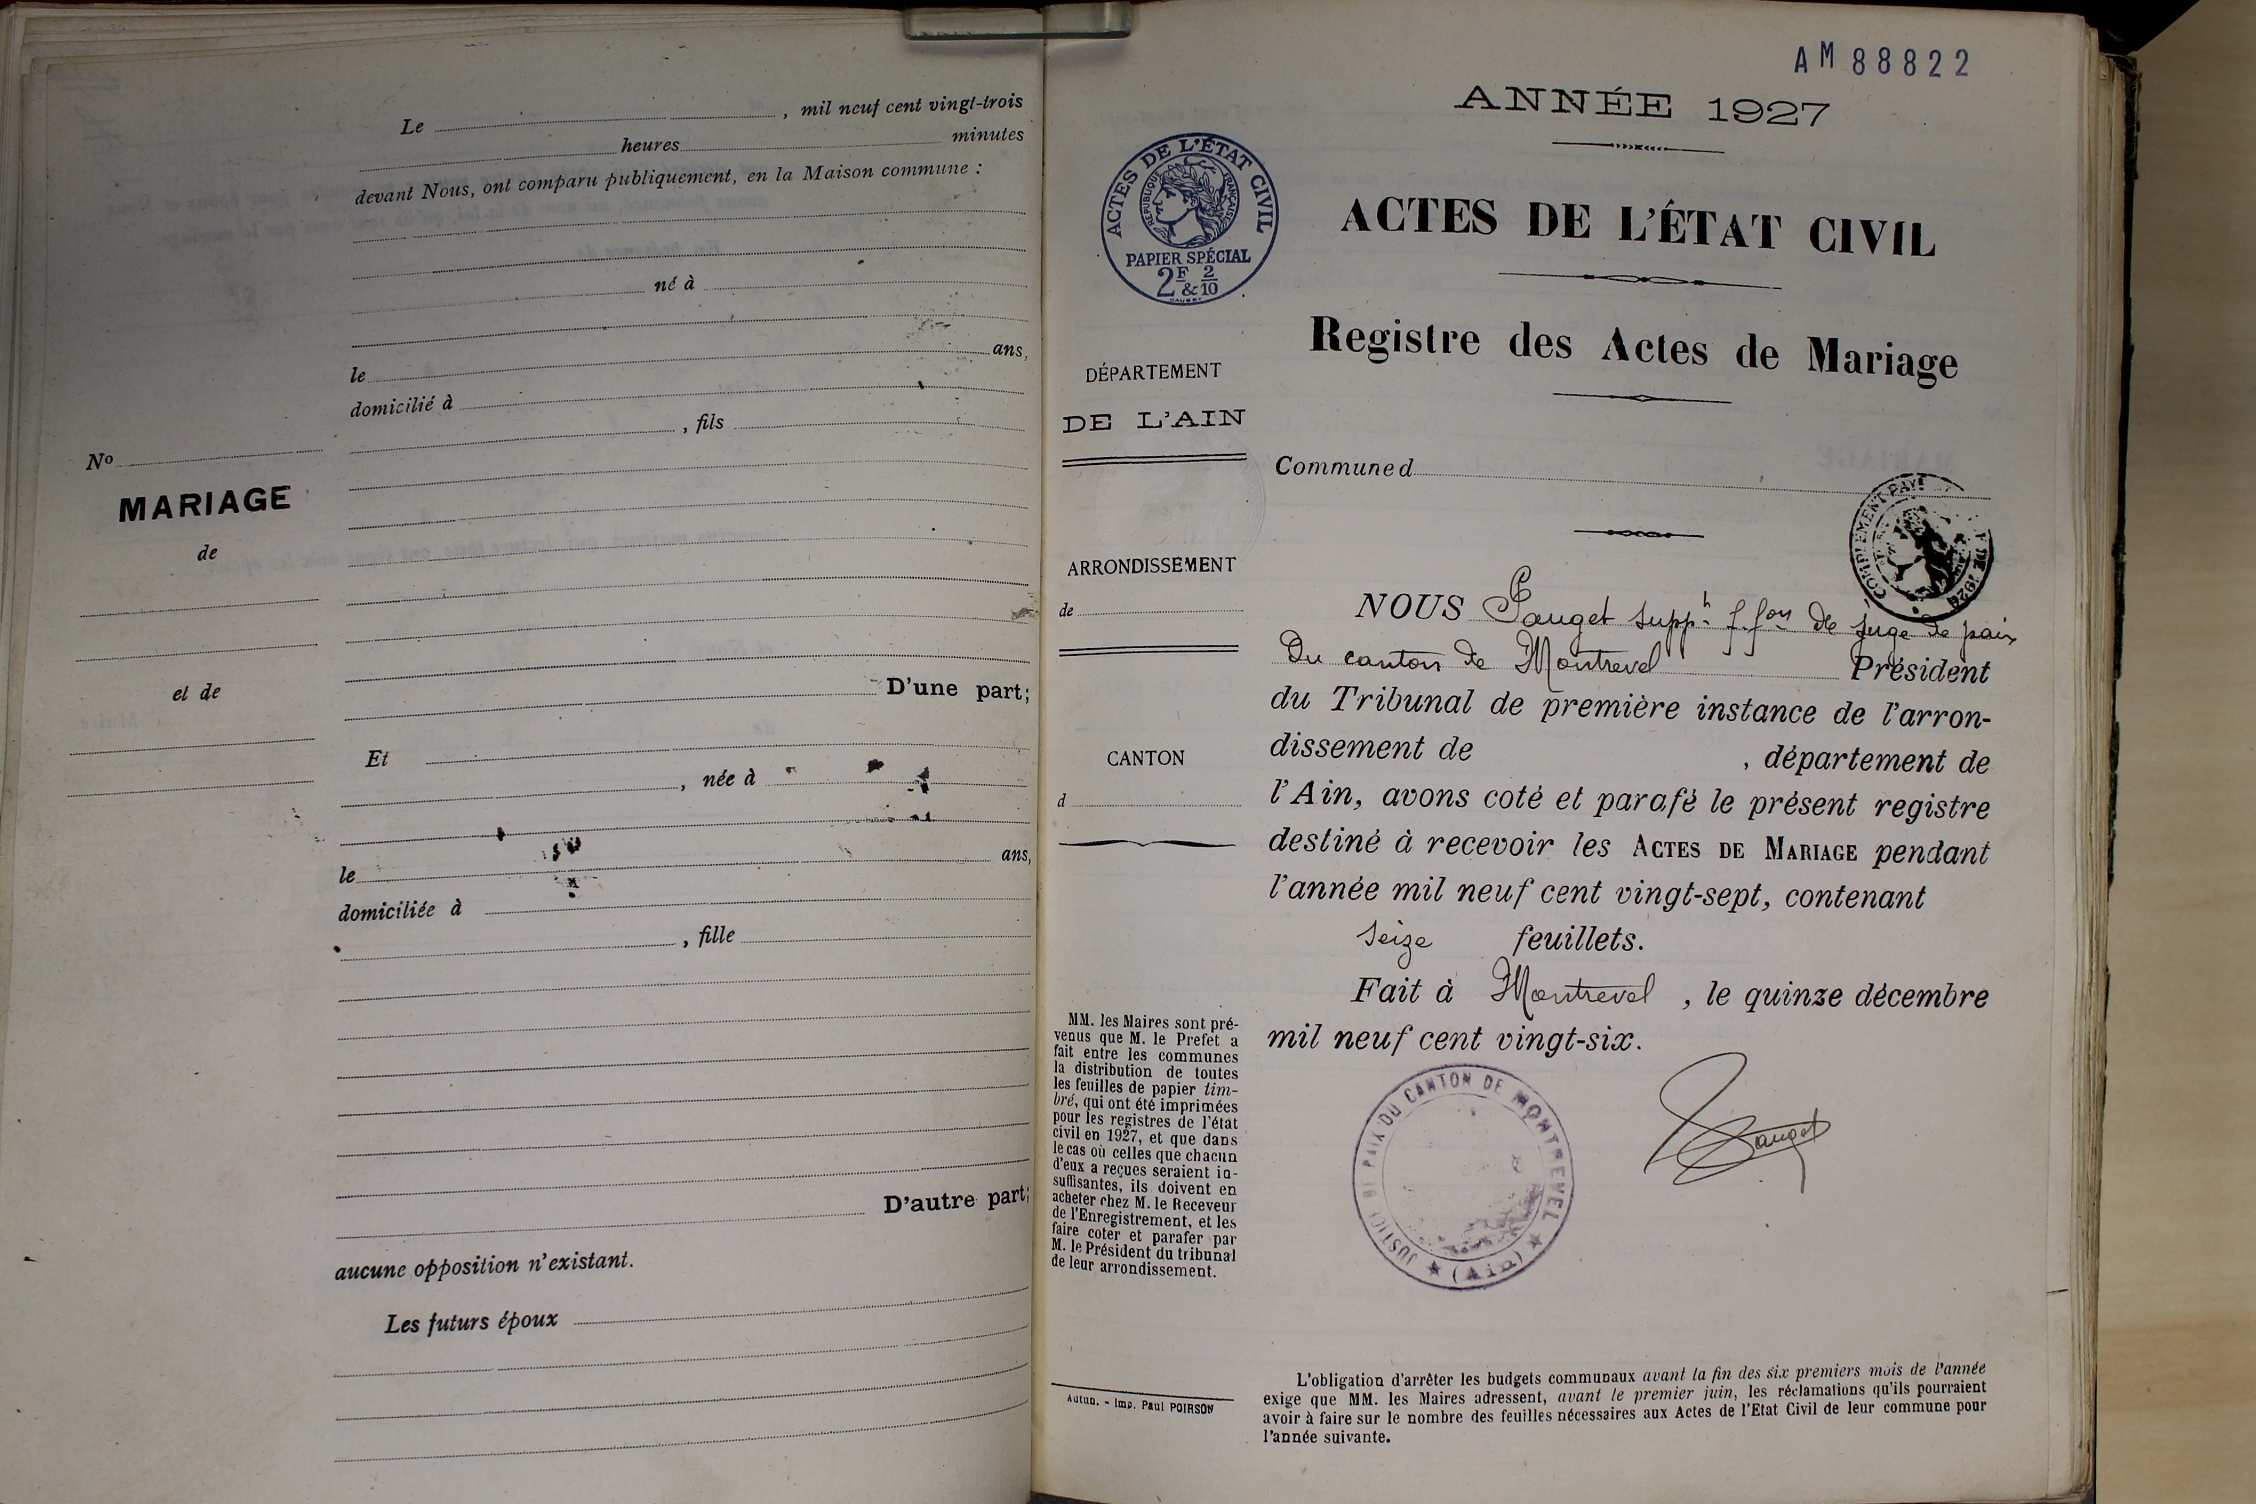 Le , mil neuf cent vingt-trois
heures minutes
devant Nous, ont comparu publiquement, en la Maison commune :
né à
le ans,
domicilié à
, fils
No
MARIAGE
de
et de
D'une part;
Et
, née à
le ans,
domiciliée à
, fille
D'autre part;
aucune opposition n'existant.
Les futurs époux
AM 88822
ANNÉE 1927
ACTES DE L'ÉTAT CIVIL
RÉPUBLIQUE FRANÇAISE
PAPIER SPÉCIAL
2F & 2/10
ACTES DE L'ÉTAT CIVIL
Registre des Actes de Mariage
DÉPARTEMENT
DE L'AIN
Commune d
COMPLÉMENT PAYÉ
DE 1926
ARRONDISSEMENT
de
CANTON
d
NOUS Pauget suppt f.fon de juge de paix
Du canton de Montrevel Président
du Tribunal de première instance de l'arron-
dissement de , département de
l'Ain, avons coté et parafé le présent registre
destiné à recevoir les ACTES DE MARIAGE pendant
l'année mil neuf cent vingt-sept, contenant
seize feuillets.
Fait à Montrevel , le quinze décembre
mil neuf cent vingt-six.
Pauget
JUSTICE DE PAIX DU CANTON DE MONTREVEL
★ (Ain) ★
MM. les Maires sont pré-
venus que M. le Prefet a
fait entre les communes
la distribution de toutes
les feuilles de papier tim-
bré, qui ont été imprimées
pour les registres de l'état
civil en 1927, et que dans
le cas où celles que chacun
d'eux a reçues seraient in-
suffisantes, ils doivent en
acheter chez M. le Receveur
de l'Enregistrement, et les
faire coter et parafer par
M. le Président du tribunal
de leur arrondissement.
Autun. - Imp. Paul POIRSON
L'obligation d'arrêter les budgets communaux avant la fin des six premiers mois de l'année
exige que MM. les Maires adressent, avant le premier juin, les réclamations qu'ils pourraient
avoir à faire sur le nombre des feuilles nécessaires aux Actes de l'Etat Civil de leur commune pour
l'année suivante.